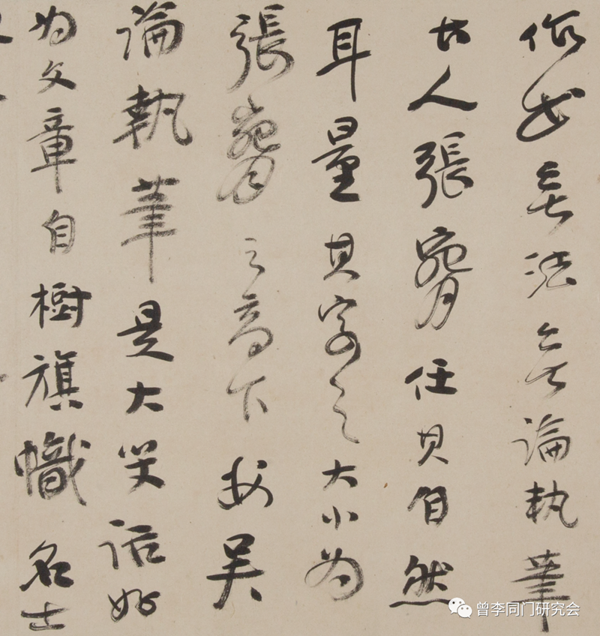 作书無法無論執筆
古人張腕任其自然
耳量其字之大小为
張腕之高下安吴
論執筆是大笑話好
为文章自樹旗幟名士
曾李同门研究会